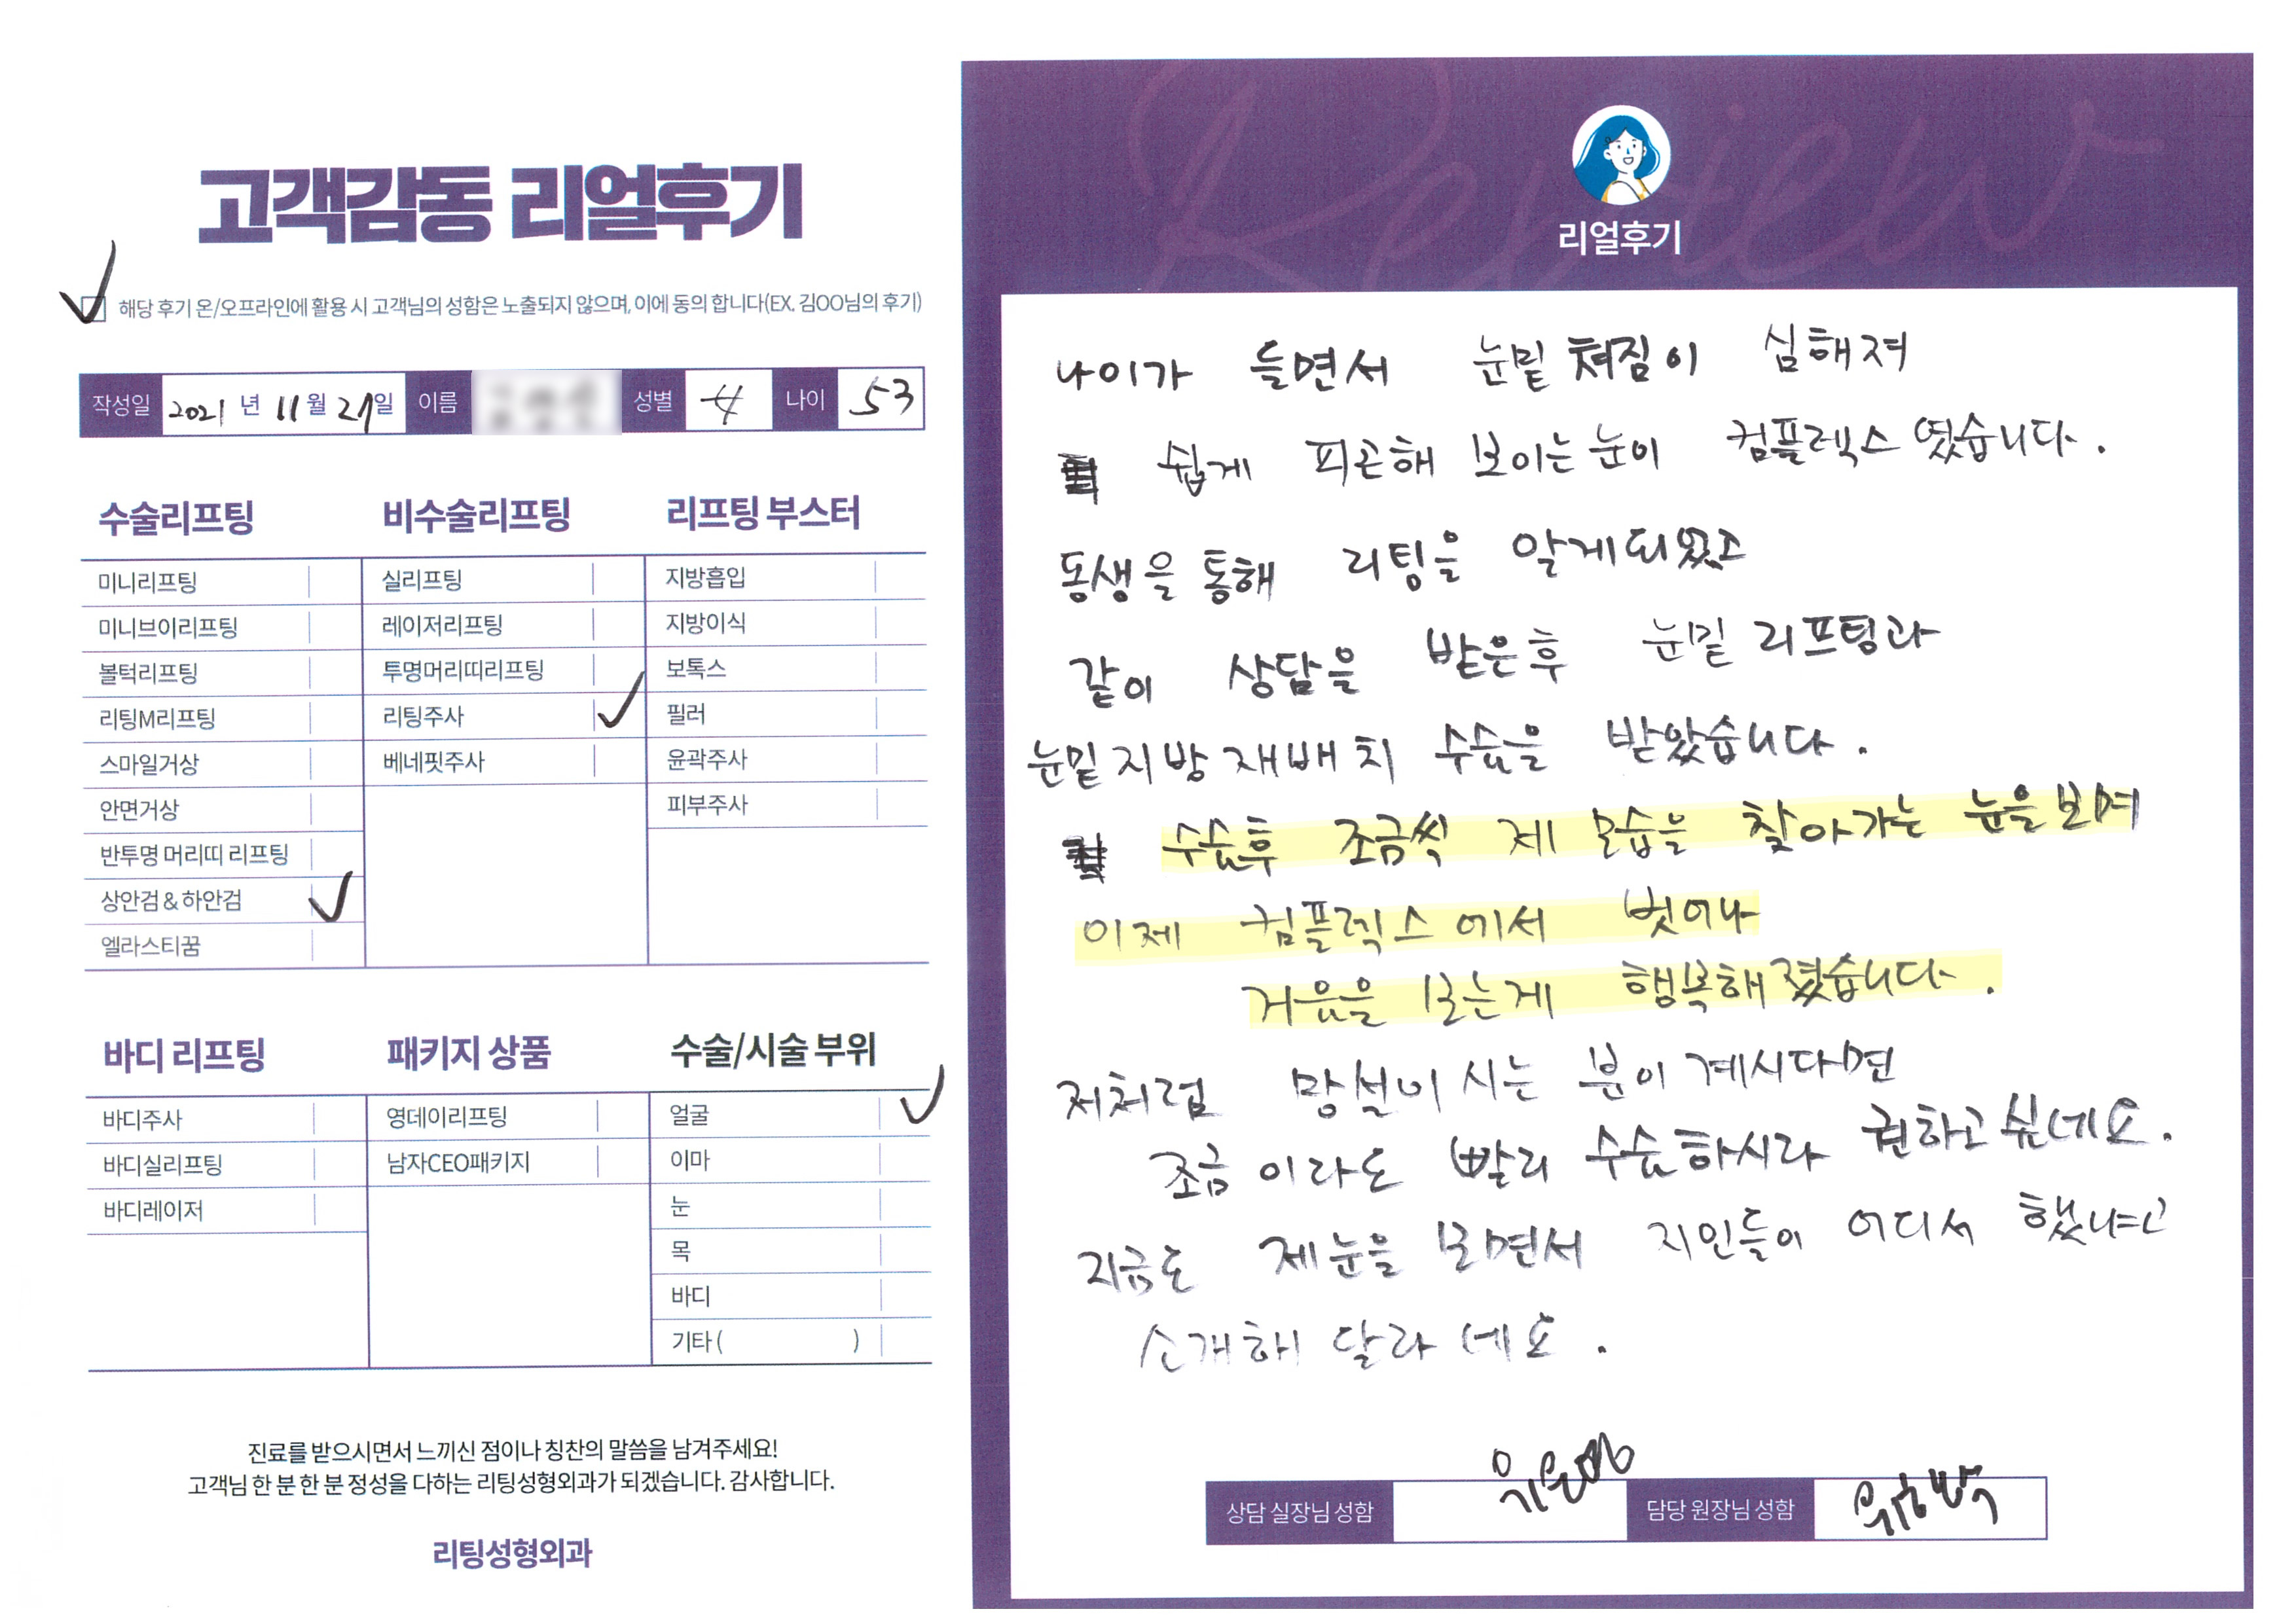 고객감동 리얼후기
해당 후기 온/오프라인에 활용 시 고객님의 성함은 노출되지 않으며, 이에 동의 합니다(EX. 김OO님의 후기)
작성일 2021 년 11 월 27 일 이름 성별 나이 53
수술리프팅
미니리프팅
미니브이리프팅
볼턱리프팅
리팅M리프팅
스마일거상
안면거상
반투명 머리띠 리프팅
상안검 & 하안검
엘라스티꿈
비수술리프팅
실리프팅
레이저리프팅
투명머리띠리프팅
리팅주사
베네핏주사
리프팅 부스터
지방흡입
지방이식
보톡스
필러
윤곽주사
피부주사
바디 리프팅
바디주사
바디실리프팅
바디레이저
패키지 상품
영데이리프팅
남자CEO패키지
수술/시술 부위
얼굴
이마
눈
목
바디
기타 ( )
진료를 받으시면서 느끼신 점이나 칭찬의 말씀을 남겨주세요!
고객님 한 분 한 분 정성을 다하는 리팅성형외과가 되겠습니다. 감사합니다.
리팅성형외과
Review
리얼후기
나이가 들면서 눈밑 쳐짐이 심해져
쉽게 피곤해 보이는 눈이 컴플렉스 였습니다.
동생을 통해 리팅을 알게되었고
같이 상담을 받은후 눈밑 리프팅과
눈밑지방재배치 수술을 받았습니다.
수술후 조금씩 제 모습을 찾아가는 눈을 보며
이제 컴플렉스에서 벗어나
거울을 보는게 행복해졌습니다.
저처럼 망설이시는 분이 계시다면
조금이라도 빨리 수술하시라 권하고 싶네요.
지금도 제 눈을 보면서 지인들이 어디서 했냐고
소개해 달라네요.
상담 실장님 성함
담당 원장님 성함